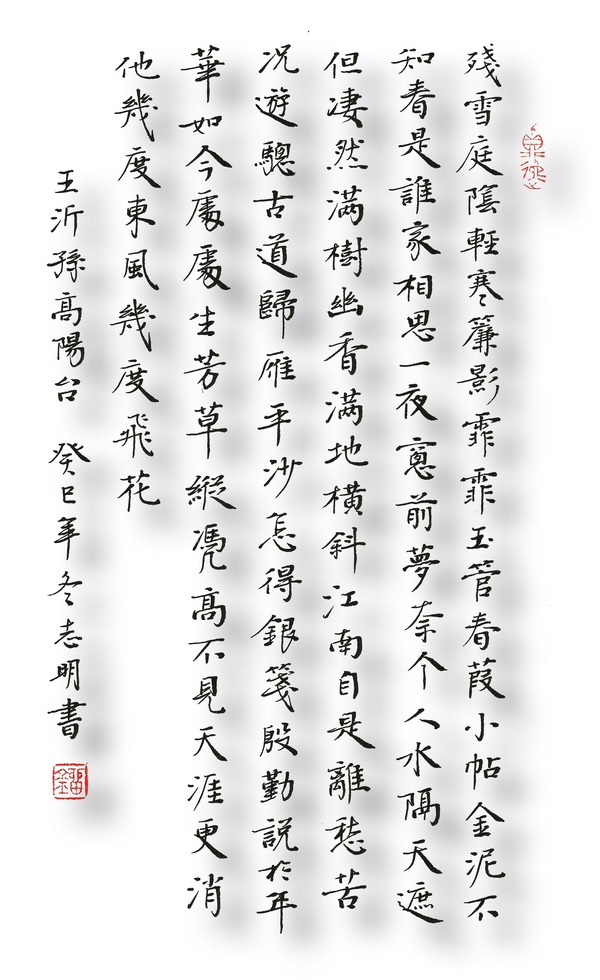 殘雪庭陰輕寒簾影霏霏玉管春葭小帖金泥不
知春是誰家相思一夜窗前夢奈个人水隔天遮
但淒然滿樹幽香滿地橫斜江南自是離愁苦
況遊驄古道歸雁平沙怎得銀箋殷勤說於年
華如今處處生芳草縱凭高不見天涯更消
他幾度東風幾度飛花
王沂孫高陽台 癸巳年冬志明書